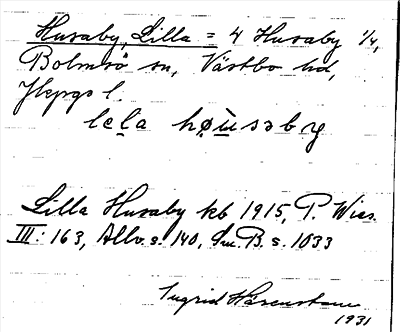 Husaby, Lilla = 4 Husaby 1/4,
Bolmsö sn, Västbo hd,
Jkpgs l.
lela høu̇səby
Lilla Husaby kb 1915, P. Wies.
III: 163, Allv. s. 140, Sm. B. s. 1033
Ingrid
1931